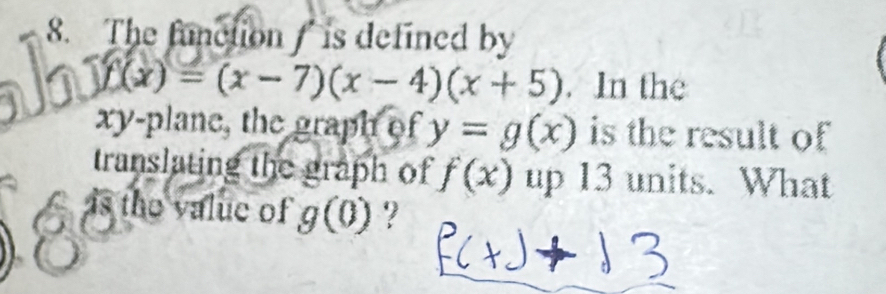 8. The function f is defined by
f(x) = (x − 7)(x − 4)(x + 5). In the
xy-plane, the graph of y = g(x) is the result of
translating the graph of f(x) up 13 units. What
is the value of g(0) ?
f(x) + 13